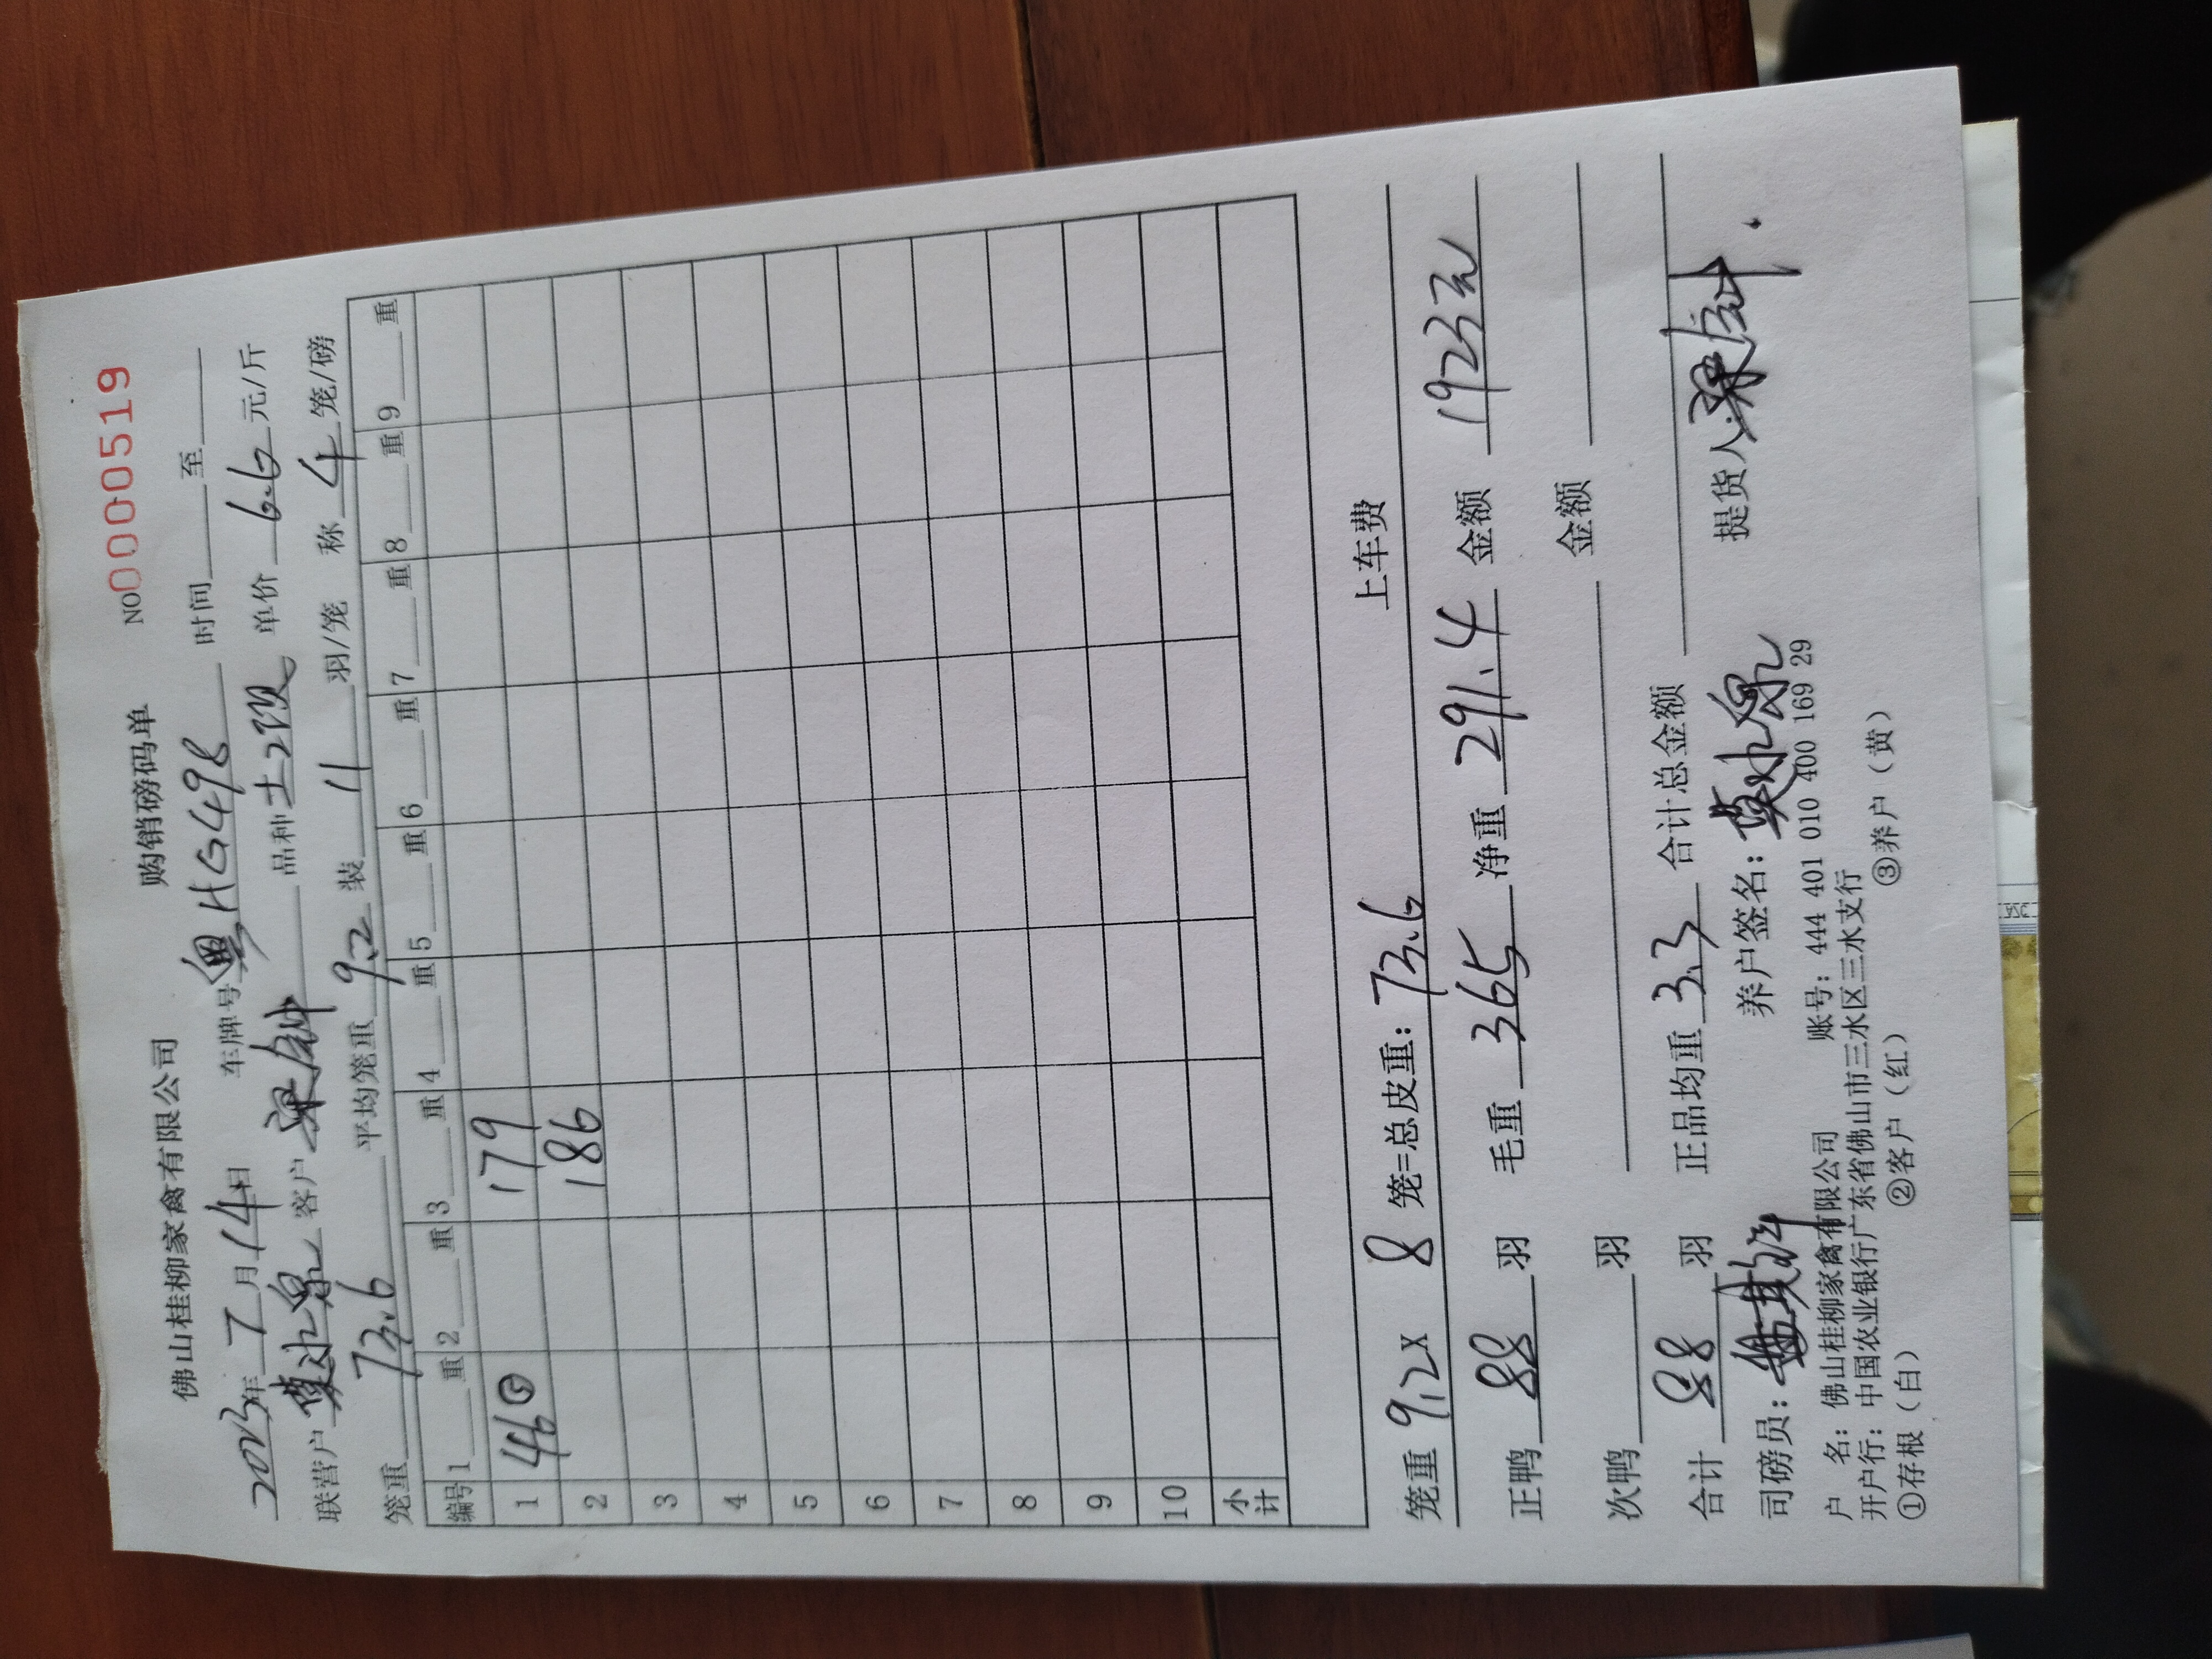 佛山桂柳家禽有限公司 购销磅码单 NO0000519
2023年 7 月 14日 车牌号 粤HG498 时间 至
联营户 莫水泉 客户 品种 土2 单价 6.6 元/斤
笼重 73.6 平均笼重 9.2 装 11 羽/笼 称 4 笼/磅
编号 1 重 2 重 3 重 4 重 5 重 6 重 7 重 8 重 9 重
1 446⑤ 179
2 186
3
4
5
6
7
8
9
10
小计
上车费
笼重 9.2 X 8 笼=总皮重: 73.6
正鸭 88 羽 毛重 365 净重 291.4 金额 1923元
次鸭 羽 金额
合计 88 羽 正品均重 3.3 合计总金额
司磅员: 养户签名: 莫水泉 提货人
户 名: 佛山桂柳家禽有限公司 账号: 444 401 010 400 169 29
开户行: 中国农业银行广东省佛山市三水区三水支行
①存根（白） ②客户（红） ③养户（黄）